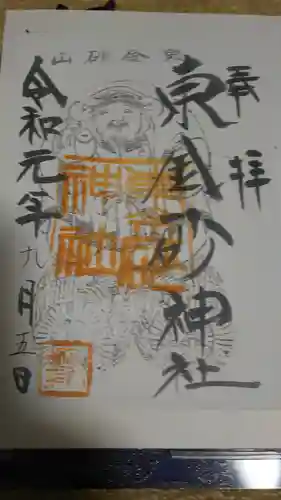 東金砂山
奉拝
東金砂神社
令和元年九月五日